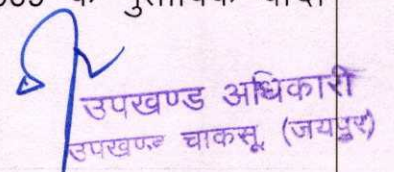 के मुताबिक
उपखण्ड अधिकारी
उपखण्ड चाकसू, (जयपुर)